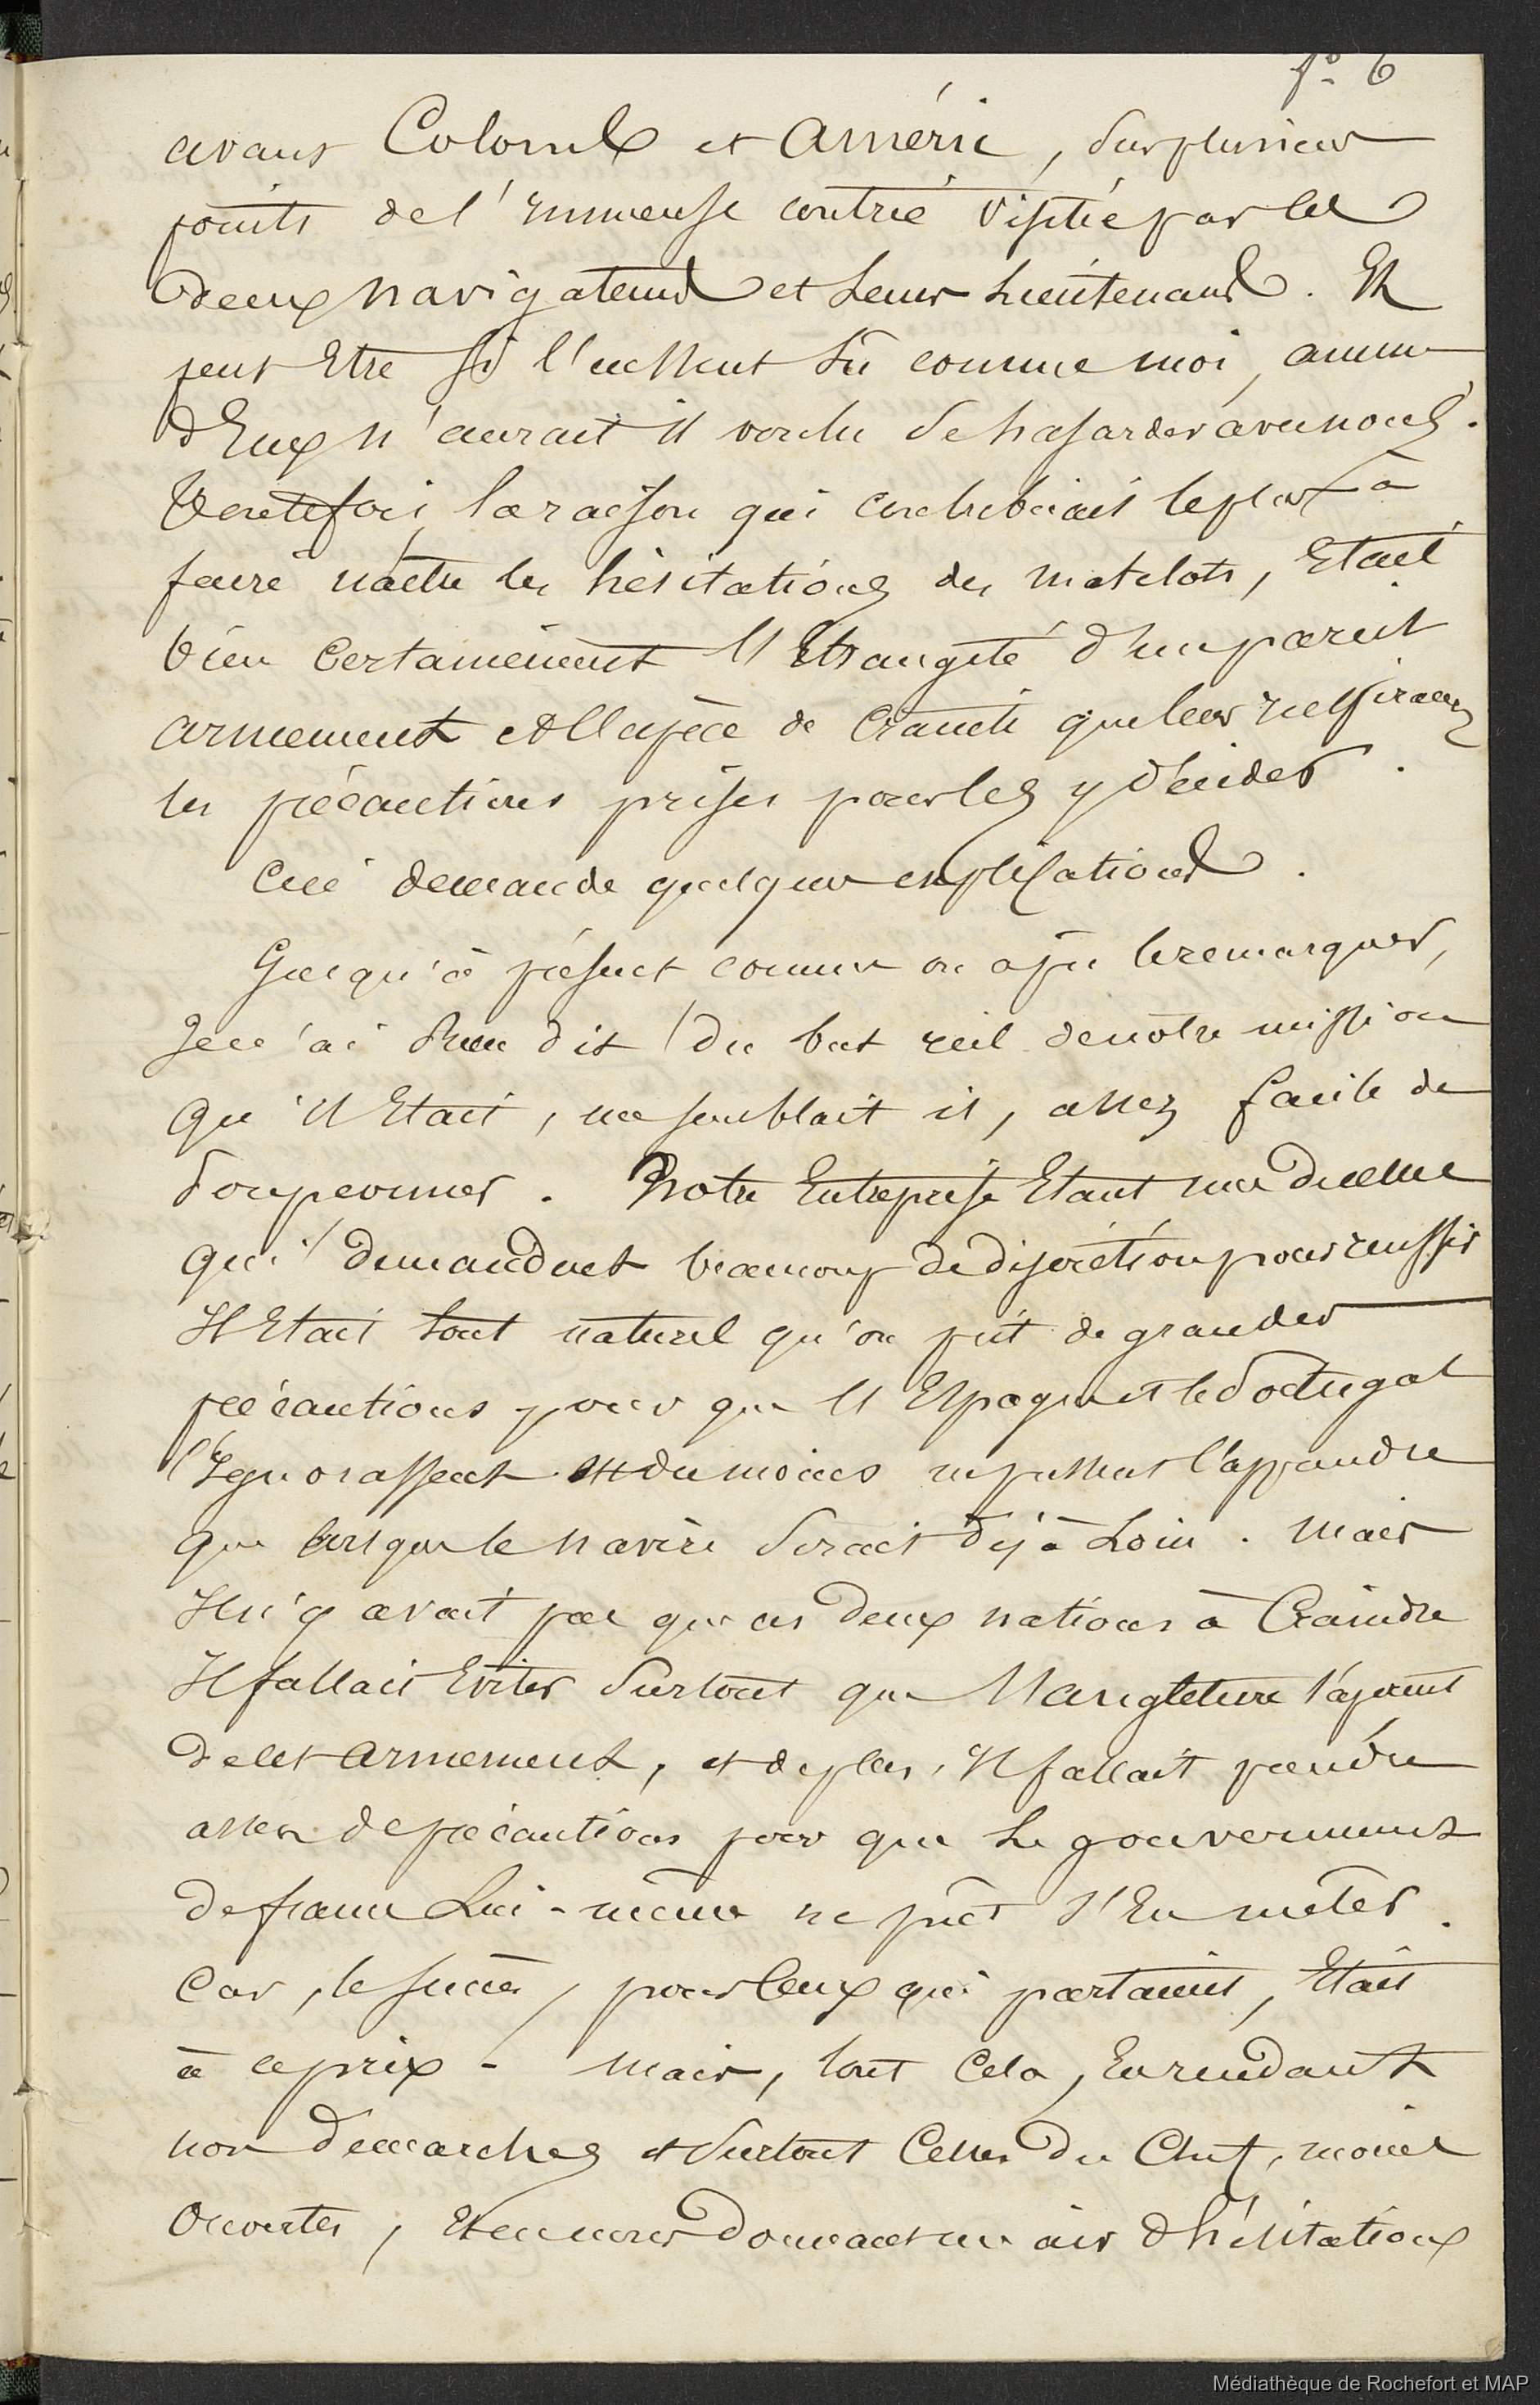 fº 6
avant Colomb et Améric, sur plusieurs
points de l'immense contrée visitée par les
deux navigateurs et leurs lieutenants. Et
peut Etre s'ils l'eussent su comme moi, aucun
d'Eux n'aurait il voulu se hasarder avec nous.
Toutefois, la raison qui contribuait le plus à
faire naître les hésitations des matelots, Etait
bien certainement l'Etrangeté d'un pareil
armement et l'espèce de crainte que leur inspiraient
les précautions prises pour les y décider.
Ceci demande quelques explications.
Jusqu'à présent comme on a pu le remarquer,
Je n'ai rien dit du but réel de notre mission
qu'il Etait, me semblait il, assez facile de
soupçonner. Notre Entreprise Etant une de celles
qui demandent beaucoup de discrétion pour réussir
Il Etait tout naturel qu'on prit de grandes
précautions pour que l'Espagne et le Portugal
l'Ignorassent ou du moins ne pussent l'apprendre
que lorsque le navire serait déjà loin. Mais
Il n'y avait pas que ces deux nations à Craindre
Il fallait Eviter surtout que l'Angleterre s'aperçut
de cet armement, et de plus, Il fallait prendre
assez de précautions pour que le gouvernement
de france lui-même ne pût s'En mêler.
Car, le succès, pour Ceux qui partaient, Etait
à ce prix - Mais, tout Cela, En rendant
nos demarches et surtout Celles du Chef, moins
ouvertes, Et en nous donnant un air d'hésitations
Médiathèque de Rochefort et MAP